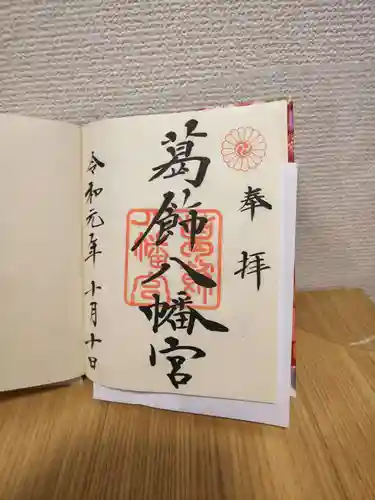 奉拝
葛飾八幡宮
令和元年十月十日
葛飾八幡宮